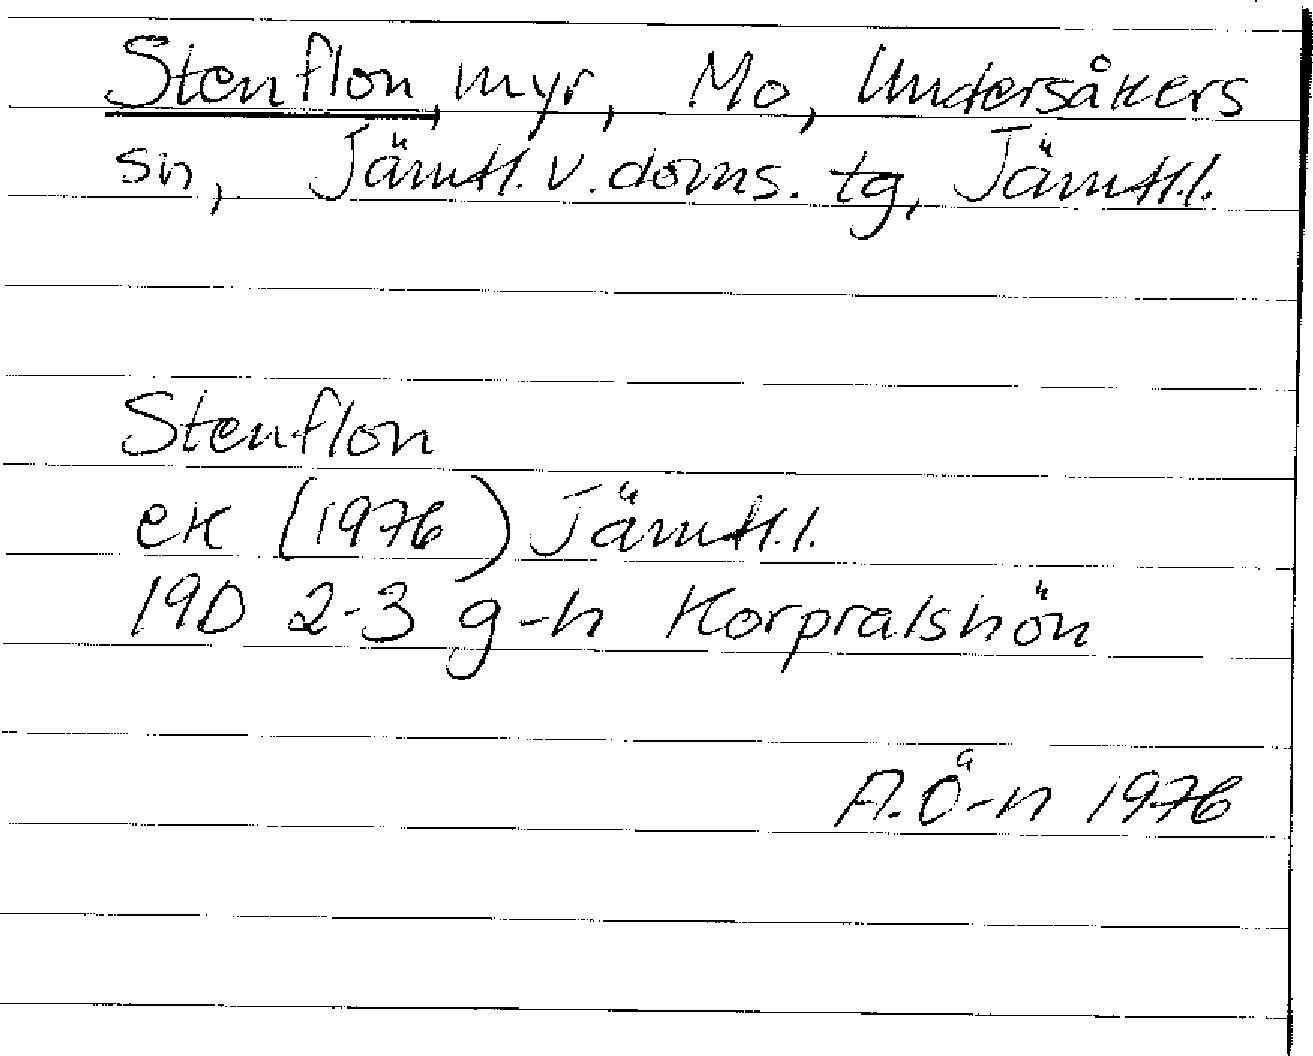 Stenflon, myr, Mo, Undersåkers
sn, Jämtl. v. doms. tg, Jämtl.l.
Stenflon
ek (1976) Jämtl.l.
19D 2-3 g-h Korpralshön
A.Ö-n 1976